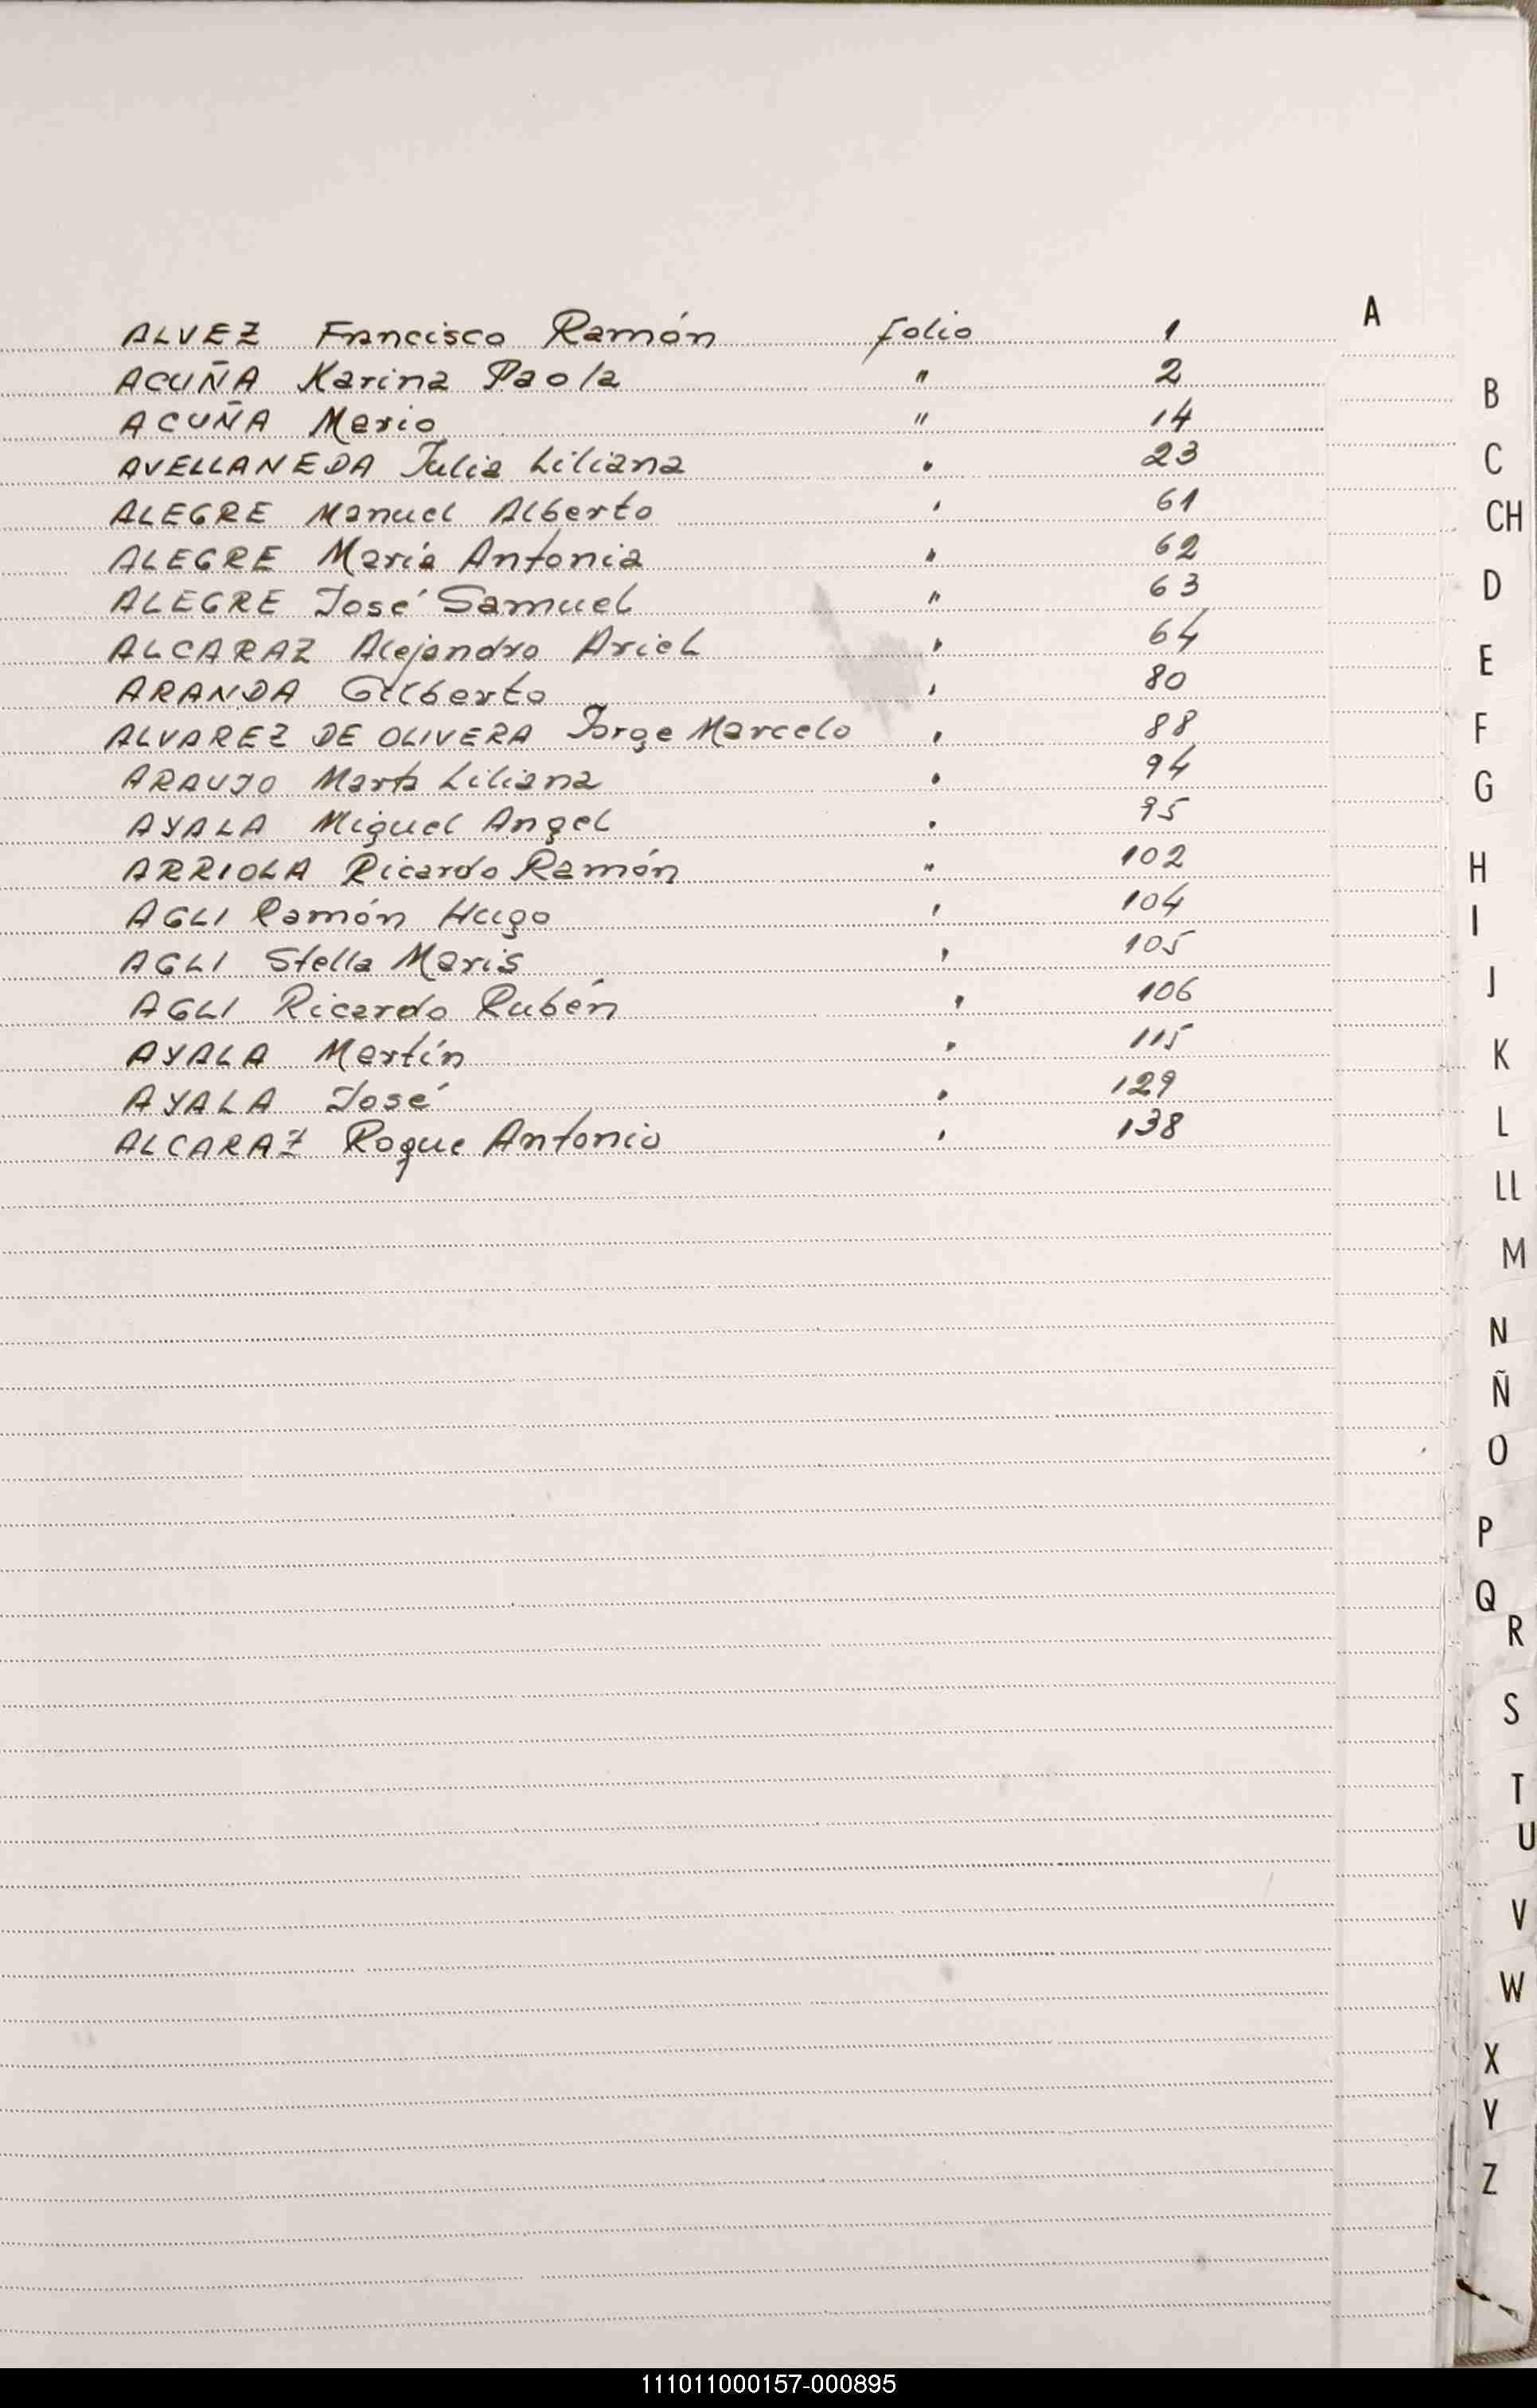 A
ALVEZ Francisco Ramón folio 1
ACUÑA Karina Paola " 2
ACUÑA Mario " 14
AVELLANEDA Julia Liliana " 23
ALEGRE Manuel Alberto " 61
ALEGRE María Antonia " 62
ALEGRE José Samuel " 63
ALCARAZ Alejandro Ariel " 64
ARANDA Gilberto " 80
ALVAREZ DE OLIVERA Jorge Marcelo " 88
ARAUJO Marta Liliana " 94
AYALA Miguel Angel " 95
ARRIOLA Ricardo Ramón " 102
AGLI Ramón Hugo " 104
AGLI Stella Maris " 105
AGLI Ricardo Rubén " 106
AYALA Martín " 115
AYALA José " 129
ALCARAZ Roque Antonio " 138
B
C
CH
D
E
F
G
H
I
J
K
L
LL
M
N
Ñ
O
P
Q
R
S
T
U
V
W
X
Y
Z
111011000157-000895